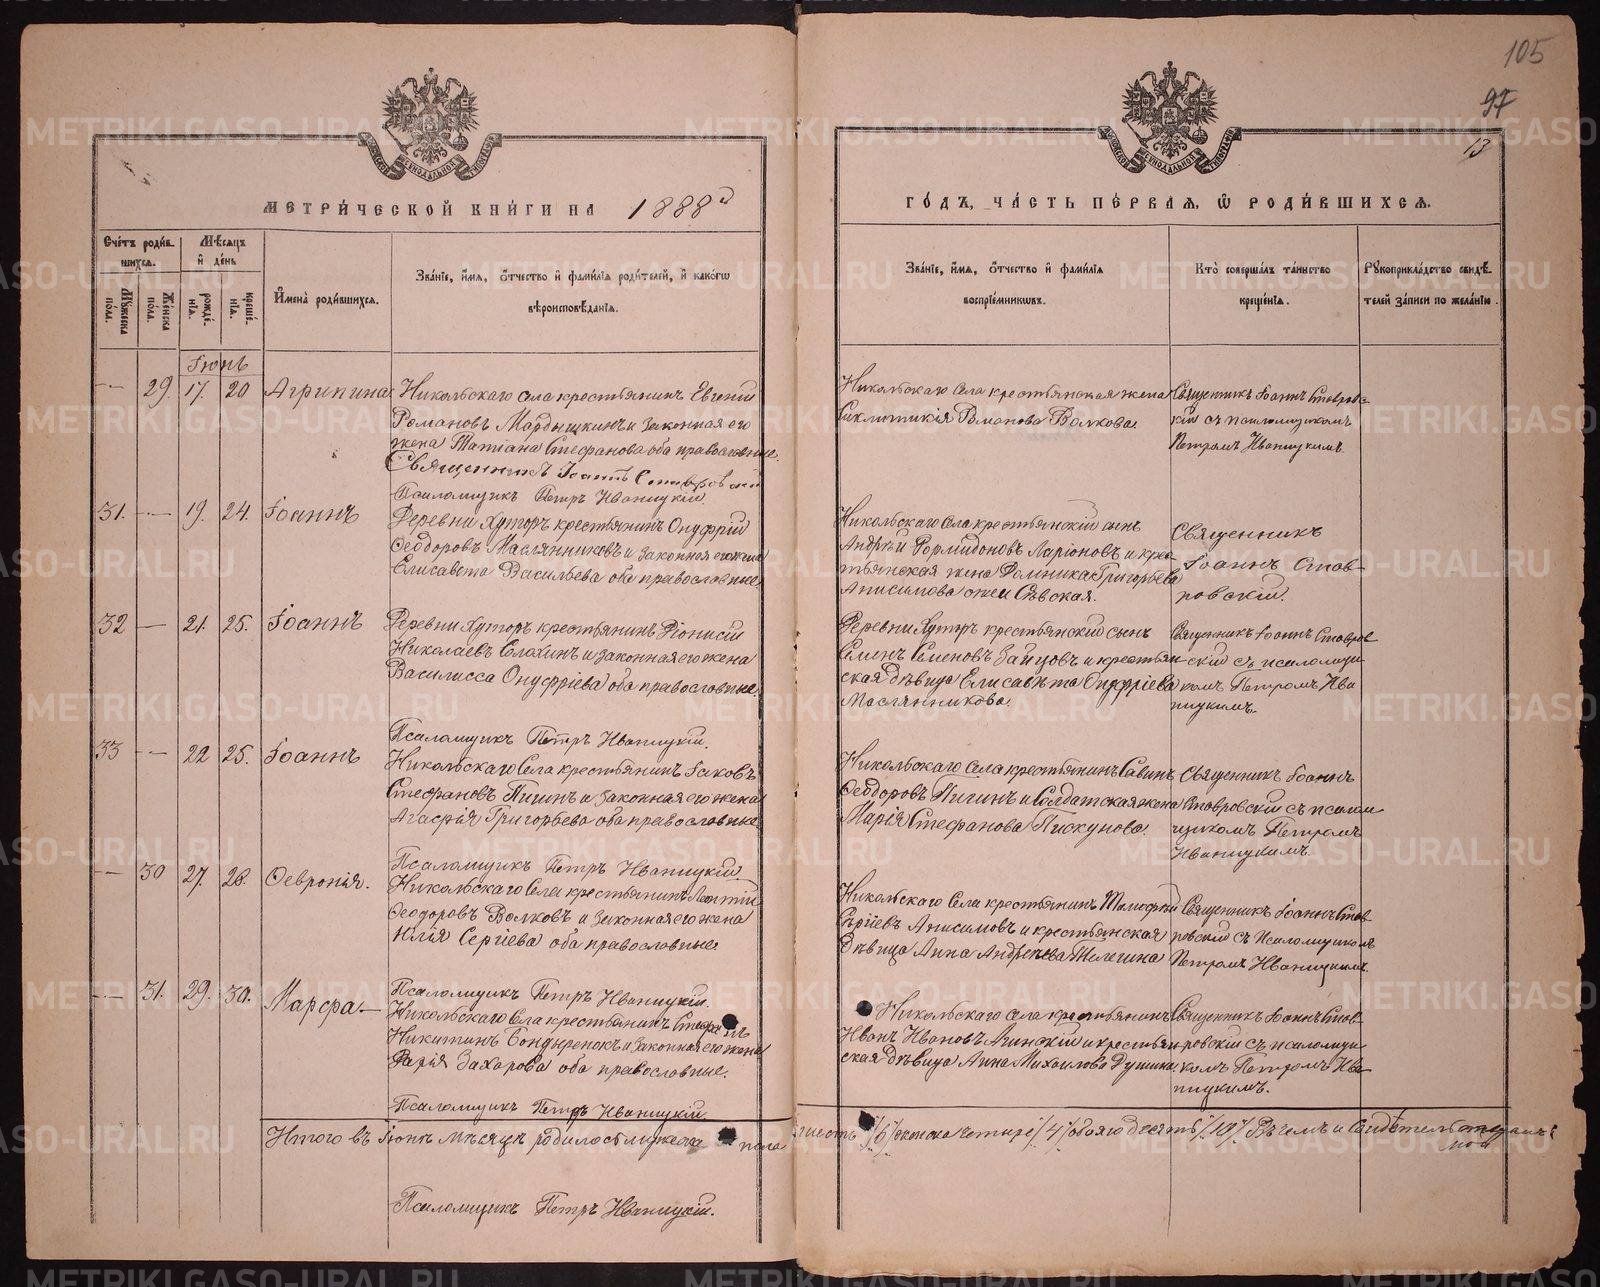 105
97
13
МЕТРИ́ЧЕСКОЙ КНИ́ГИ НА 1888й
ГО́ДЪ, ЧА́СТЬ ПЕ́РВАЯ, Ѽ РОДИ́ВШИХСЯ.
Сче́тъ роди́в-
шихся.
Му́жеска по́ла.
Же́нска по́ла.
Мѣ́сяцъ и̂ де́нь
рожде́-
нїя.
креще́-
нїя.
И҆мена̀ роди́вшихся.
Зва́нїе, и҆́мя, ѻ҆́тчество и҆ фами́лїя роди́телей, и҆ како́гѡ
вѣроисповѣ́данїя.
Зва́нїе, и҆́мя, ѻ҆́тчество и҆ фами́лїя
воспрїе́мниковъ.
Кто̀ соверша́лъ та́инство
креще́нїя.
Рꙋкоприкла́дство свидѣ́-
телей за́писи по жела́нїю.
Іюнь
29. 17. 20 Агрипина
Никольскаго села крестьянинъ Евгеній
Романовъ Мардышкинъ и законная его
жена Татіана Стефанова оба православные.
Священникъ Іоаннъ Ставровскій
Псаломщикъ Петръ Иваницкій
Никольскаго села крестьянская жена
Синклитикія Романова Волкова.
Священникъ Іоаннъ Ставровс-
кій съ псаломщикомъ
Петромъ Иваницкимъ.
31. 19. 24. Іоаннъ
Деревни Хуторъ крестьянинъ Онуфрій
Ѳеодоровъ Маслянниковъ и законная его жена
Елисавета Васильева оба православные.
Никольскаго села крестьянскій сынъ
Андрей Ларіоновъ и крес-
тьянская жена Домника Григорьева
Анисимова
Священникъ
Іоаннъ Став-
ровскій.
32 21. 25. Іоаннъ
Деревни Хуторъ крестьянинъ Діонисій
Николаевъ Елохинъ и законная его жена
Василисса Онуфріева оба православные.
Псаломщикъ Петръ Иваницкій.
Деревни Хуторъ крестьянскій сынъ
Семенъ Семеновъ Зайцовъ и крестьян-
ская дѣвица Елисавета Онуфріева
Маслянникова.
Священникъ Іоаннъ Ставров-
скій съ псаломщи-
комъ Петромъ Ива-
ницкимъ.
33 22 25. Іоаннъ
Никольскаго села крестьянинъ Іаковъ
Стефановъ Пигинъ и законная его жена
Агафія Григорьева оба православные.
Псаломщикъ Петръ Иваницкій.
Никольскаго села крестьянинъ Савинъ
Ѳеодоровъ Пигинъ и Солдатская жена
Марія Стефанова Пискунова.
Священникъ Іоаннъ
Ставровскій съ псалом-
щикомъ Петромъ
Иваницкимъ.
30 27. 28. Ѳевронія.
Никольскаго села крестьянинъ Леонтій
Ѳеодоровъ Волковъ и законная его жена
Юлія Сергіева оба православные.
Псаломщикъ Петръ Иваницкій.
Никольскаго села крестьянинъ Тимофей
Сергіевъ Анисимовъ и крестьянская
дѣвица Анна Андреева Телегина
Священникъ Іоаннъ Став-
ровскій съ псаломщикомъ
Петромъ Иваницкимъ.
31. 29. 30. Марѳа.
Никольскаго села крестьянинъ
Никитинъ Бондыренокъ и законная его жена
Дарія Захарова оба православные.
Псаломщикъ Петръ Иваницкій
Никольскаго села крестьянинъ
Иванъ Ивановъ Агинскій и крестьян-
ская дѣвица Анна Михаилова Душина
Священникъ Іоаннъ Став-
ровскій съ псаломщи-
комъ Петромъ Ива-
ницкимъ.
Итого въ Іюнѣ мѣсяцѣ родилось мужеска пола шесть /6/ женска четыре /4/ обоего десять /10/. Въ чемъ и
Псаломщикъ Петръ Иваницкій.
METRIKI.GASO-URAL.RU